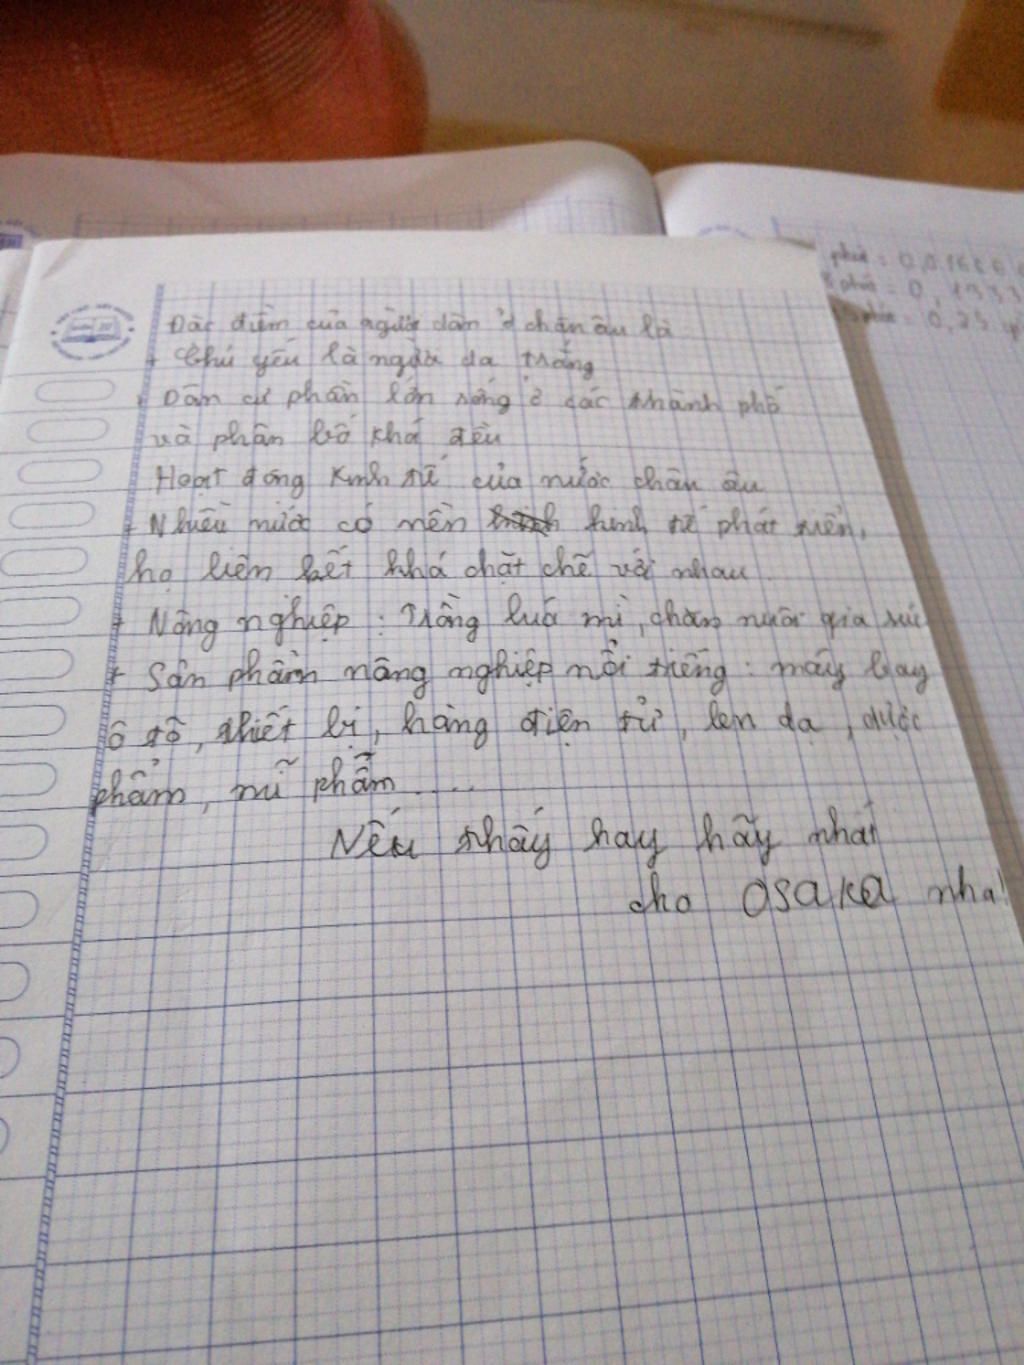 Đăc điểm của người dân ở chân âu là
+ Chủ yếu là người da trắng
+ Dân cư phần lớn sống ở các thành phố
và phân bố khá đều
Hoạt đông kinh tế của nước chân âu
+ Nhiều nước có nền kinh tế phát triển,
họ liên kết khá chặt chẽ với nhau
+ Nông nghiệp : Trồng luá mì, chăn nuôi gia súc
+ Sản phẩm nông nghiệp nổi tiếng : máy bay
ô tô, thiết bị, hàng điện tử, len dạ, dược
phẩm, mĩ phẩm ....
Nếu thấy hay hãy nhất
cho osaka nha!
phút = 0,0166
phút = 0,1333
phút = 0,25